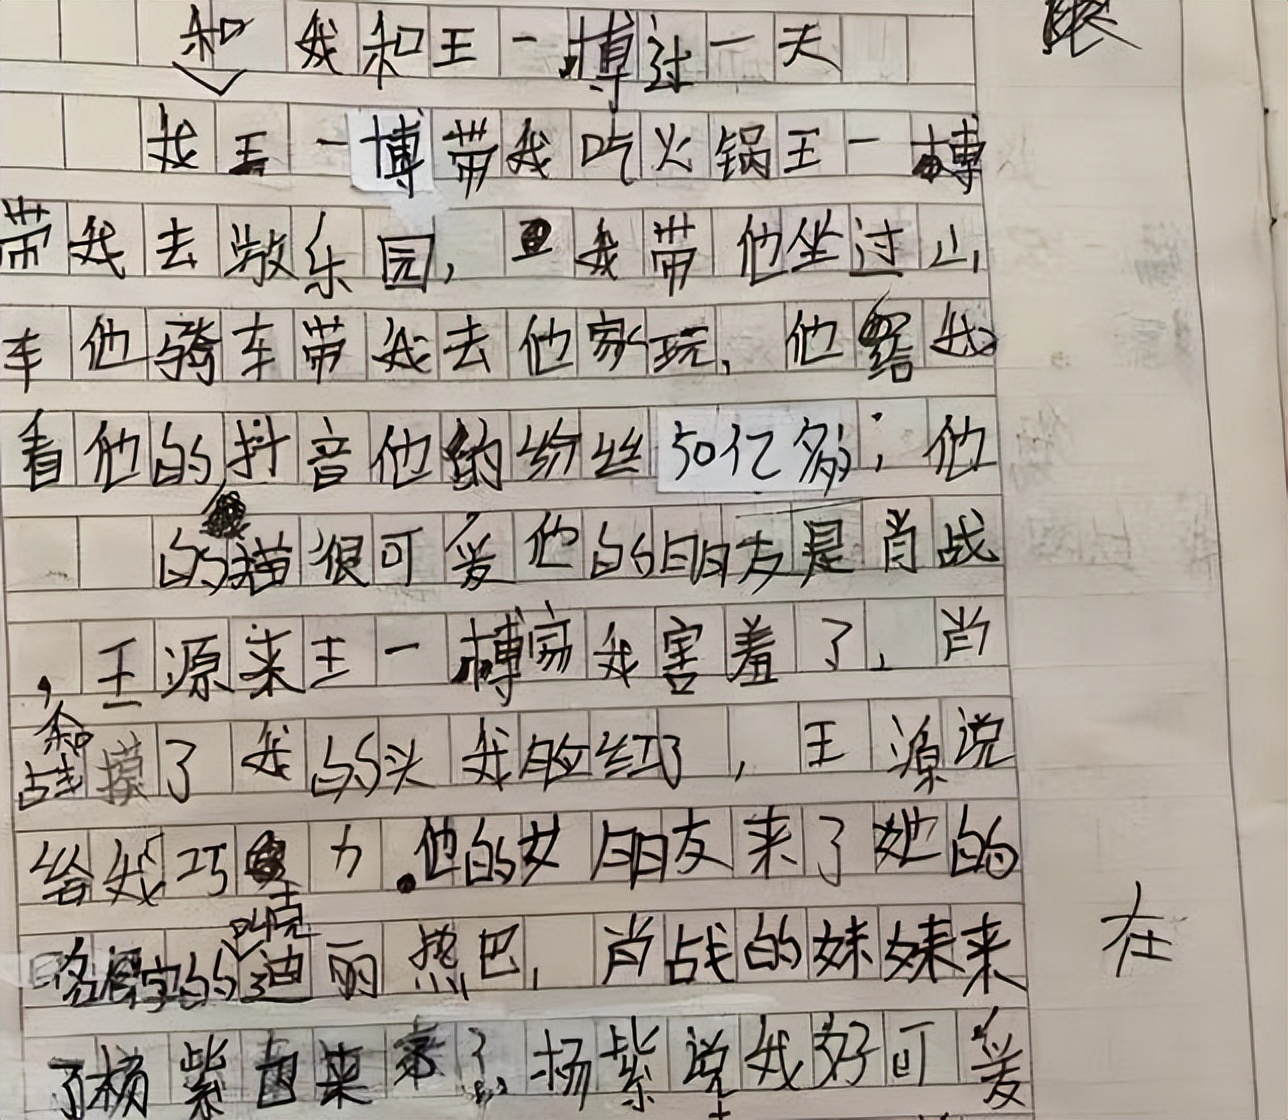 和我和王一博过一天
我王一博带我吃火锅王一博
带我去游乐园，我带他坐过山
车他骑车带我去他家玩，他给我
看他的抖音他的纷丝50亿多；他
的猫很可爱他的朋友是肖战
，王源来王一博家我害羞了，肖
战摸了我的头我脸红了，王源说
给我巧克力.他的女朋友来了她的
名字叫的迪丽热巴，肖战的妹妹来
了杨紫也来了，杨紫说我好可爱
在